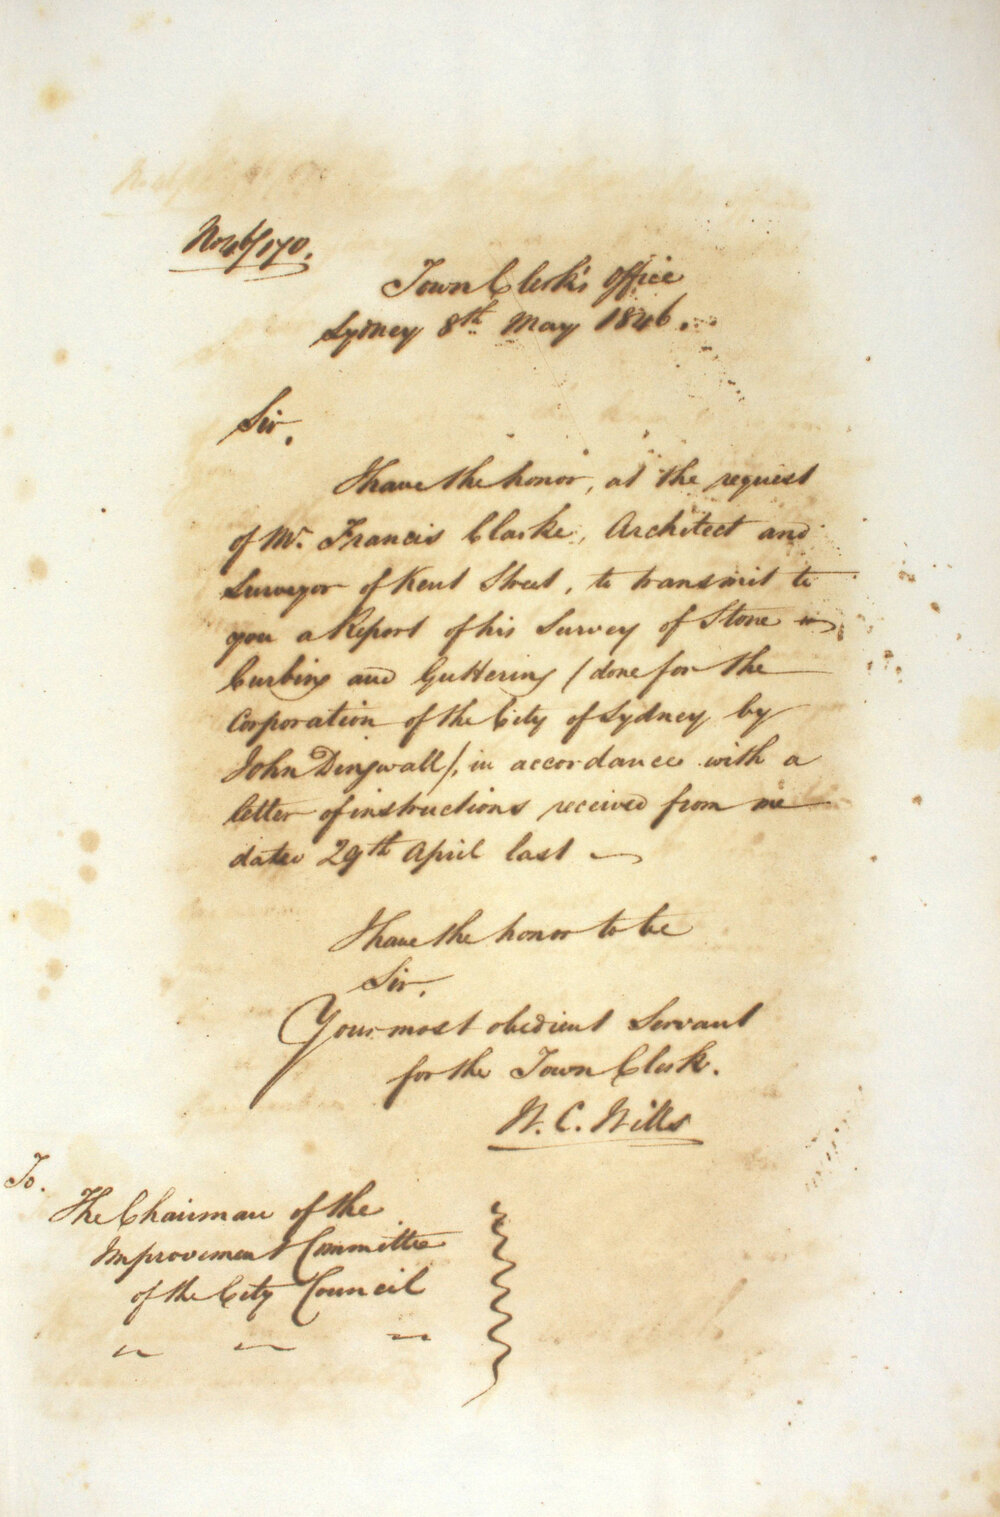 No 46/170.
Town Clerk's Office
Sydney 8th May 1846.
Sir,
I have the honor, at the request
of Mr. Francis Clarke, Architect and
Surveyor of Kent Street, to transmit to
you a Report of his Survey of Stone
Curbing and Guttering (done for the
Corporation of the City of Sydney by
John Dingwall), in accordance with a
letter of instructions received from me
dated 29th April last
I have the honor to be
Sir,
Your most obedient Servant
for the Town Clerk.
W. C. Wills
To.
The Chairman of the
Improvement Committee
of the City Council